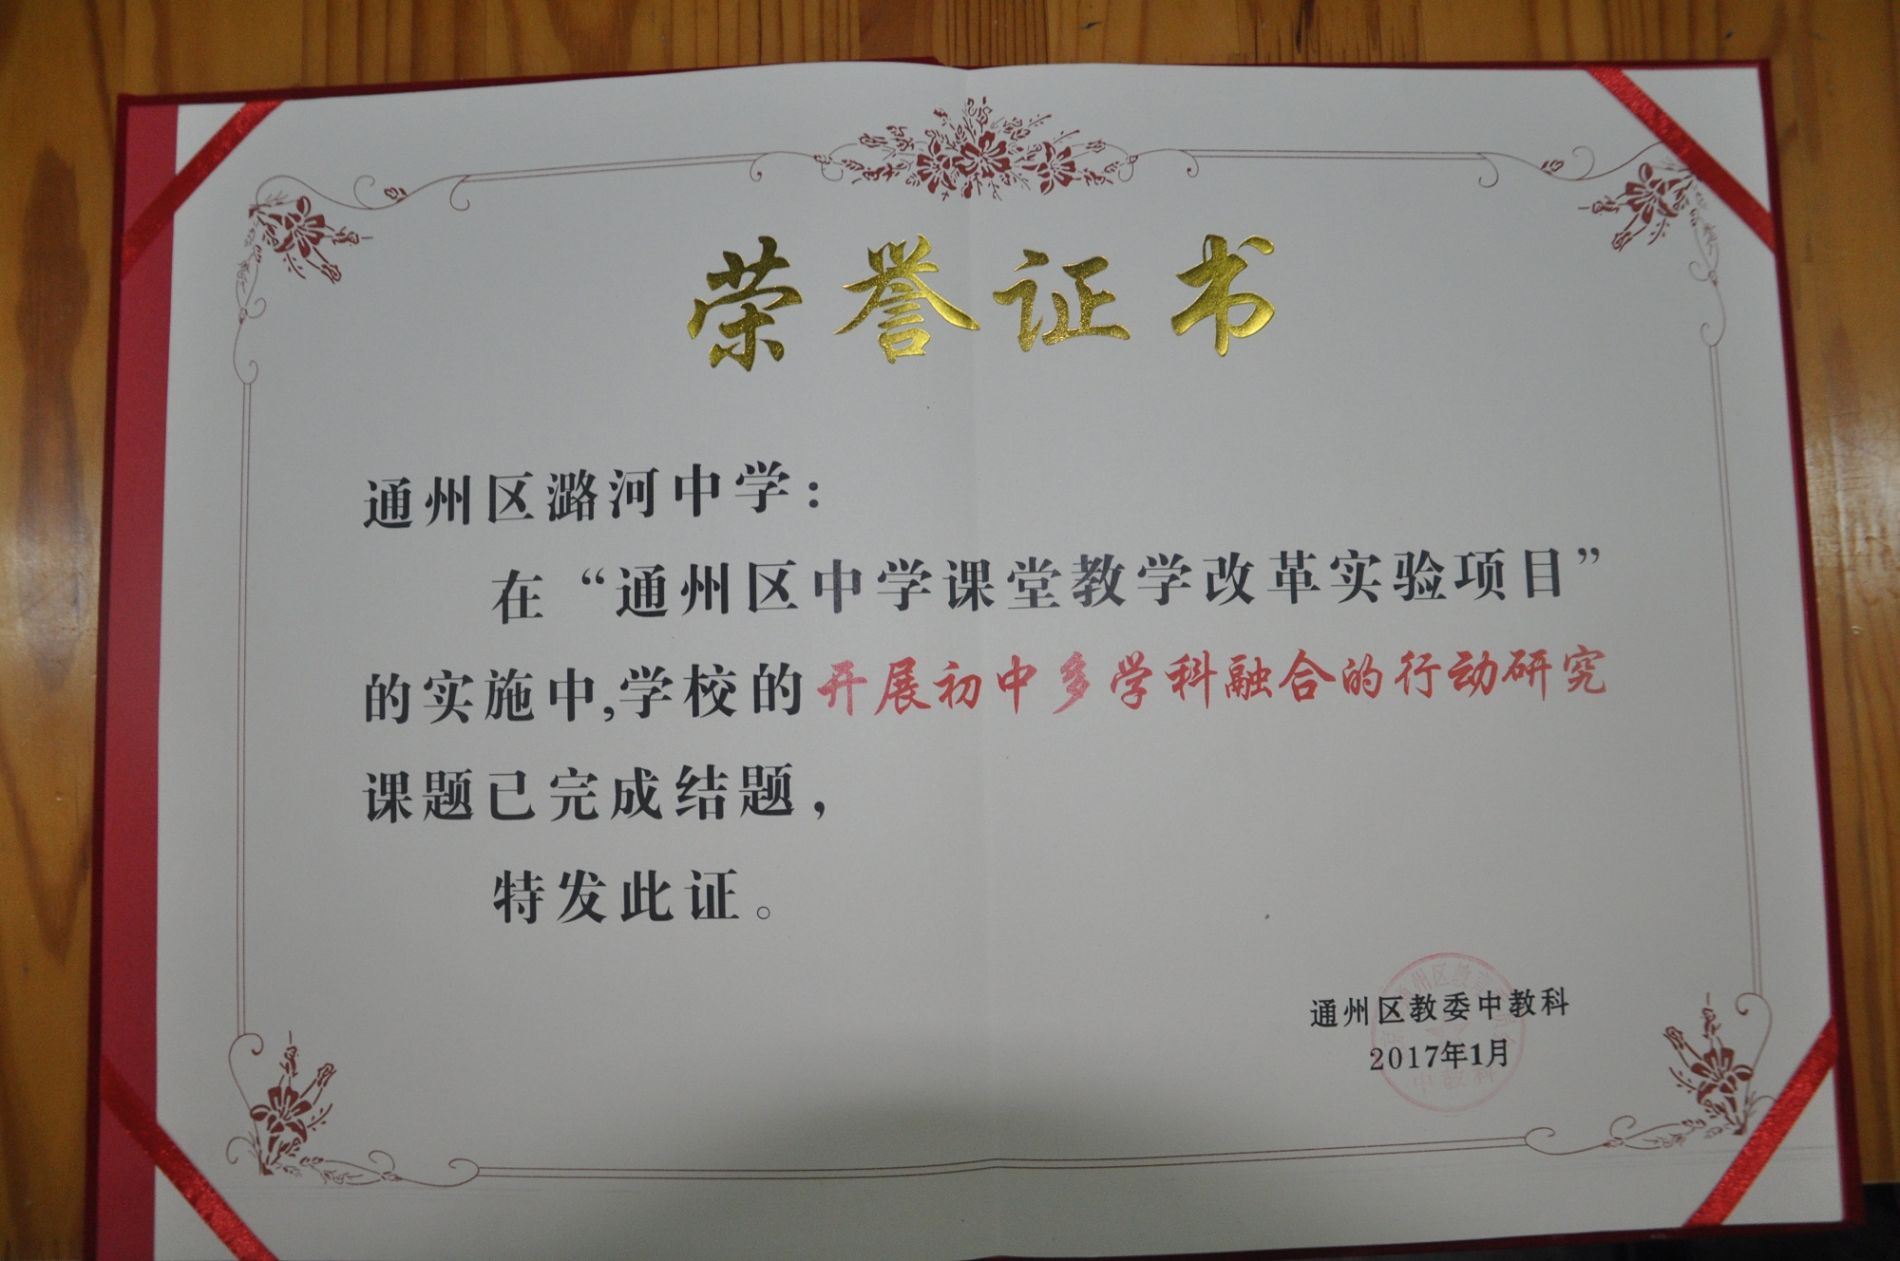 荣誉证书
通州区潞河中学：
在“通州区中学课堂教学改革实验项目”
的实施中,学校的开展初中多学科融合的行动研究
课题已完成结题，
特发此证。
通州区教委中教科
2017年1月
中教科